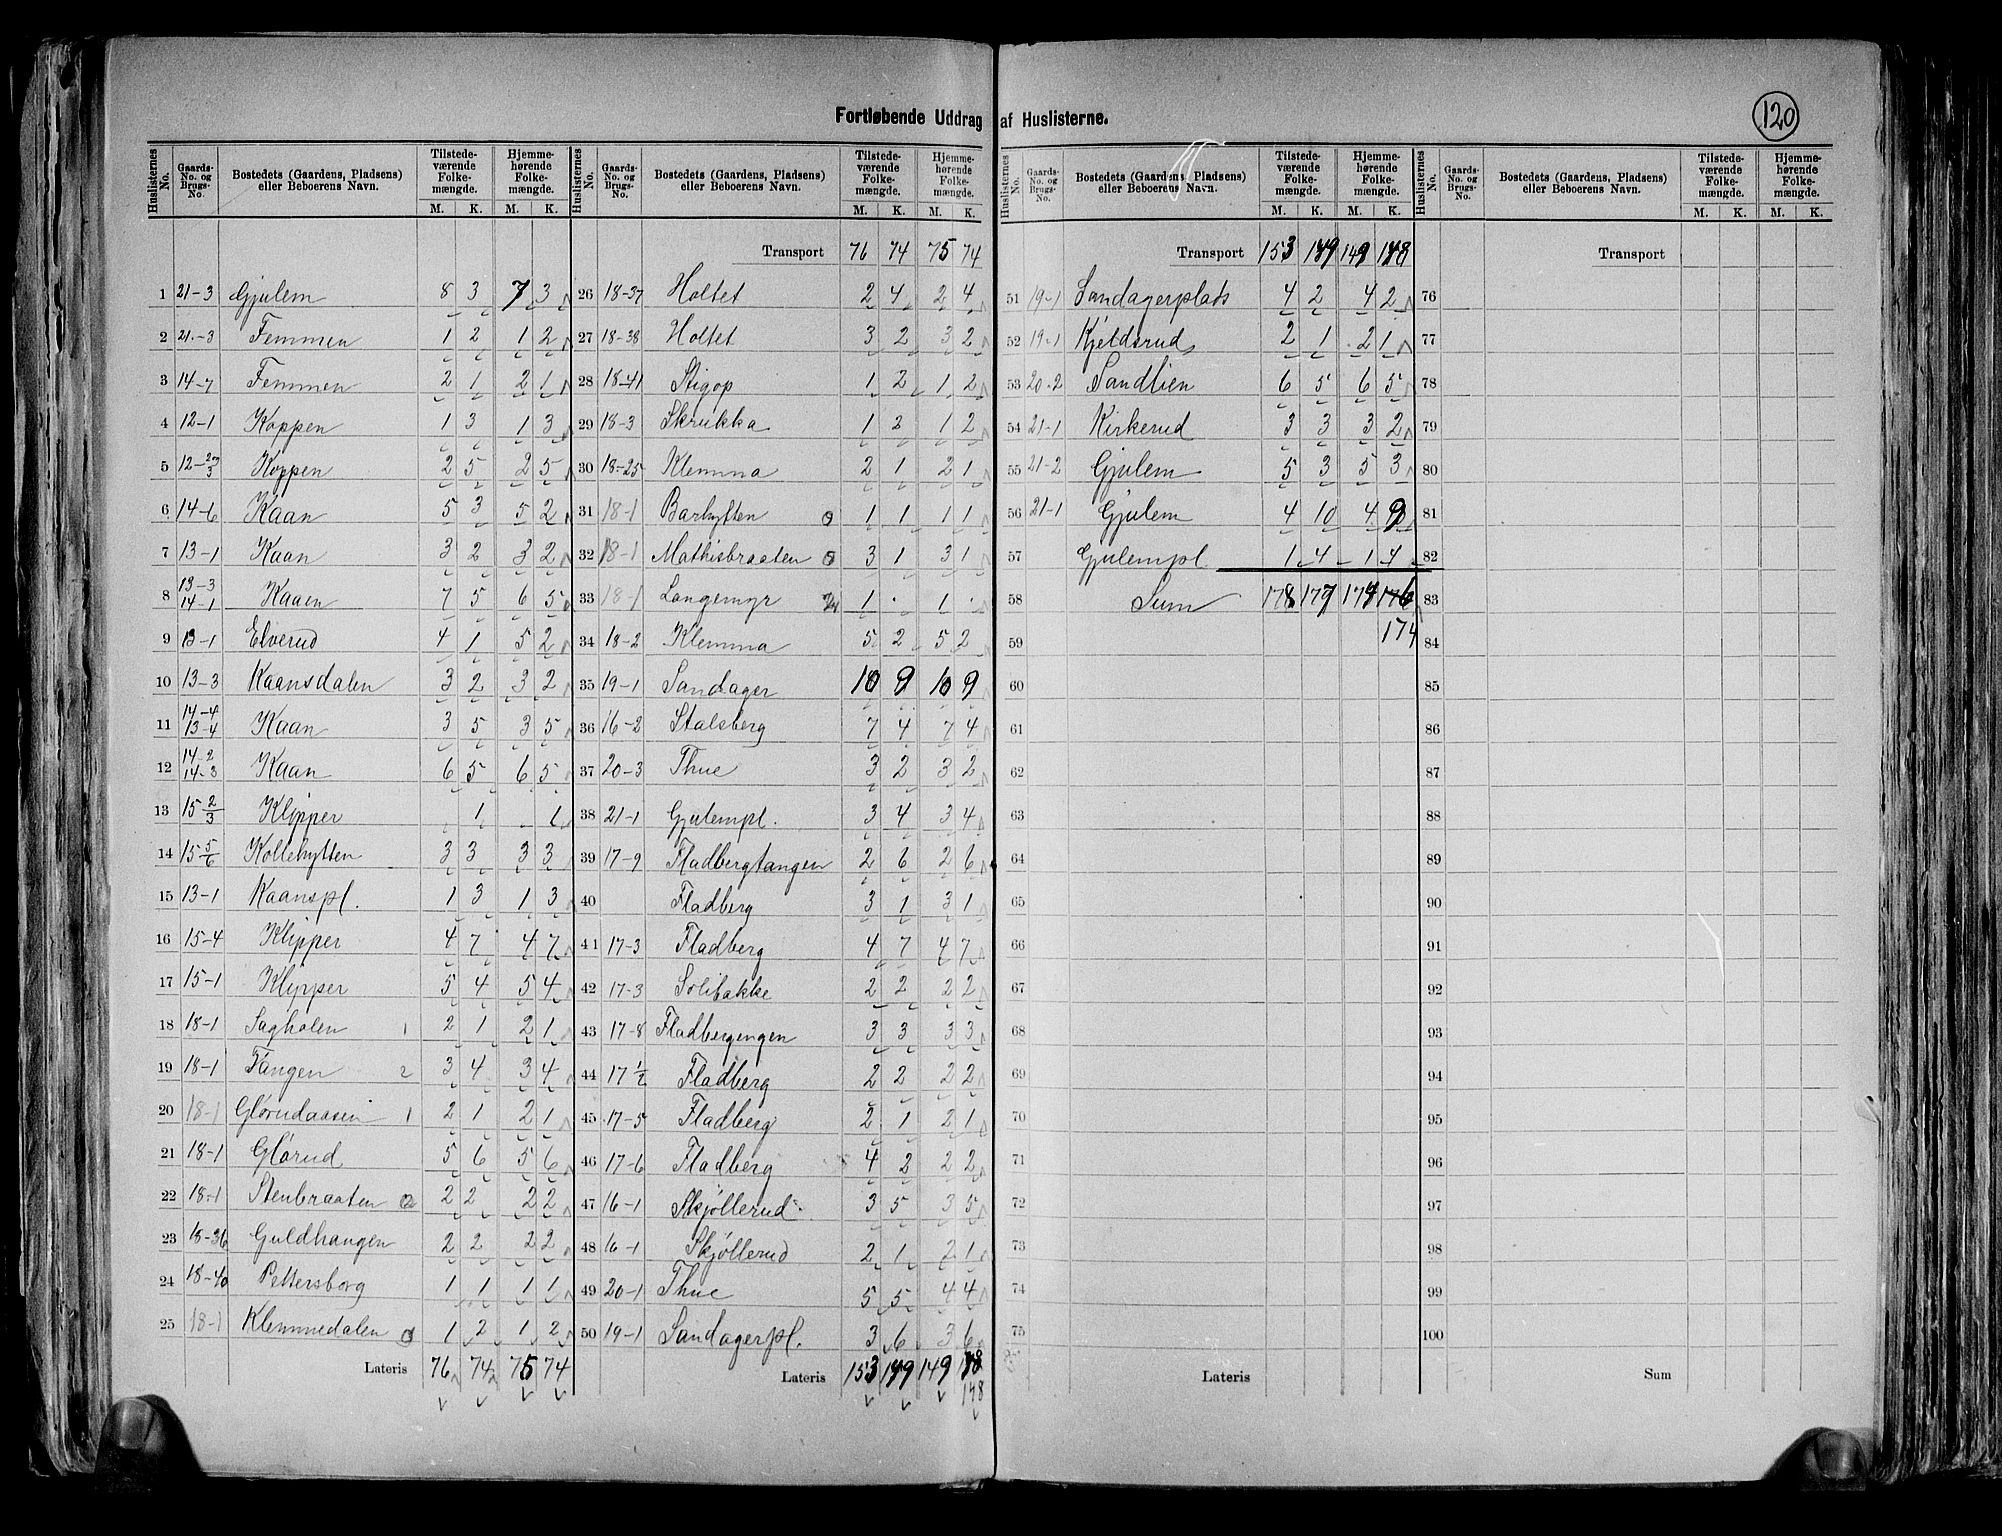 Fortløbende Uddrag af Huslisterne.
120
Huslisternes No. | Gaards-No. og Brugs-No. | Bostedets (Gaardens, Pladsens) eller Beboerens Navn. | Tilstede-værende Folke-mængde. M. K. | Hjemme-hørende Folke-mængde. M. K.
1 21-3 Gjulem 8 3 7 3
2 21-3 Femmen 1 2 1 2
3 14-7 Femmen 2 1 2 1
4 12-1 Koppen 1 3 1 3
5 12-2/3 Koppen 2 5 2 5
6 14-6 Kaan 5 3 5 2
7 13-1 Kaan 3 2 3 2
8 13-3 14-1 Kaaen 7 5 6 5
9 13-1 Elverud 4 1 5 2
10 13-3 Kaansdalen 3 2 3 2
11 14-4 13-4 Kaan 3 5 3 5
12 14-2 14-3 Kaan 6 5 6 5
13 15 2/3 Klypper 1 1
14 15 5/6 Kollehytten 3 3 3 3
15 13-1 Kaanspl. 1 3 1 3
16 15-4 Klypper 4 7 4 7
17 15-1 Klypper 5 4 5 4
18 18-1 Sagholen 1 2 1 2 1
19 18-1 Tangen 2 3 4 3 4
20 18-1 Glørudaasen 1 2 1 2 1
21 18-1 Glørud 5 6 5 6
22 18-1 Stenbraaten 2 2 2 2
23 18-36 Guldhaugen 2 2 2 2
24 18-40 Pettersborg 1 1 1 1
25 18-1 Klemmedalen 1 2 1 2
Lateris 76 74 75 74
Huslisternes No. | Gaards-No. og Brugs-No. | Bostedets (Gaardens, Pladsens) eller Beboerens Navn. | Tilstede-værende Folke-mængde. M. K. | Hjemme-hørende Folke-mængde. M. K.
Transport 76 74 75 74
26 18-37 Holtet 2 4 2 4
27 18-38 Holtet 3 2 3 2
28 18-41 Stigop 1 2 1 2
29 18-3 Skrukka 1 2 1 2
30 18-25 Klemma 2 1 2 1
31 18-1 Barhytten 0 1 1 1 1
32 18-1 Mathisbraaten 0 3 1 3 1
33 18-1 Langemyr 1 . 1 .
34 18-2 Klemma 5 2 5 2
35 19-1 Sandager 10 9 10 9
36 16-2 Stalsberg 7 4 7 4
37 20-3 Thue 3 2 3 2
38 21-1 Gjulempl. 3 4 3 4
39 17-9 Fladbergtangen 2 6 2 6
40 Fladberg 3 1 3 1
41 17-3 Fladberg 4 7 4 7
42 17-3 Solibakke 2 2 2 2
43 17-8 Fladbergengen 3 3 3 3
44 17 1/2 Fladberg 2 2 2 2
45 17-5 Fladberg 2 1 2 1
46 17-6 Fladberg 4 2 2 2
47 16-1 Skjøllerud 3 5 3 5
48 16-1 Skjøllerud 2 1 2 1
49 20-1 Thue 5 5 4 4
50 19-1 Sandagerpl. 3 6 3 6
Lateris 153 149 149 148
148
Huslisternes No. | Gaards-No. og Brugs-No. | Bostedets (Gaardens, Pladsens) eller Beboerens Navn. | Tilstede-værende Folke-mængde. M. K. | Hjemme-hørende Folke-mængde. M. K.
Transport 153 149 149 148
51 19-1 Sandagerplads 4 2 4 2
52 19-1 Kjeldsrud 2 1 2 1
53 20-2 Sandlien 6 5 6 5
54 21-1 Kirkerud 3 3 3 2
55 21-2 Gjulem 5 3 5 3
56 21-1 Gjulem 4 10 4 9
57 Gjulempl 1 4 1 4
58 Sum 178 177 174 176
174
59
60
61
62
63
64
65
66
67
68
69
70
71
72
73
74
75
Lateris
Huslisternes No. | Gaards-No. og Brugs-No. | Bostedets (Gaardens, Pladsens) eller Beboerens Navn. | Tilstede-værende Folke-mængde. M. K. | Hjemme-hørende Folke-mængde. M. K.
Transport
76
77
78
79
80
81
82
83
84
85
86
87
88
89
90
91
92
93
94
95
96
97
98
99
100
Sum